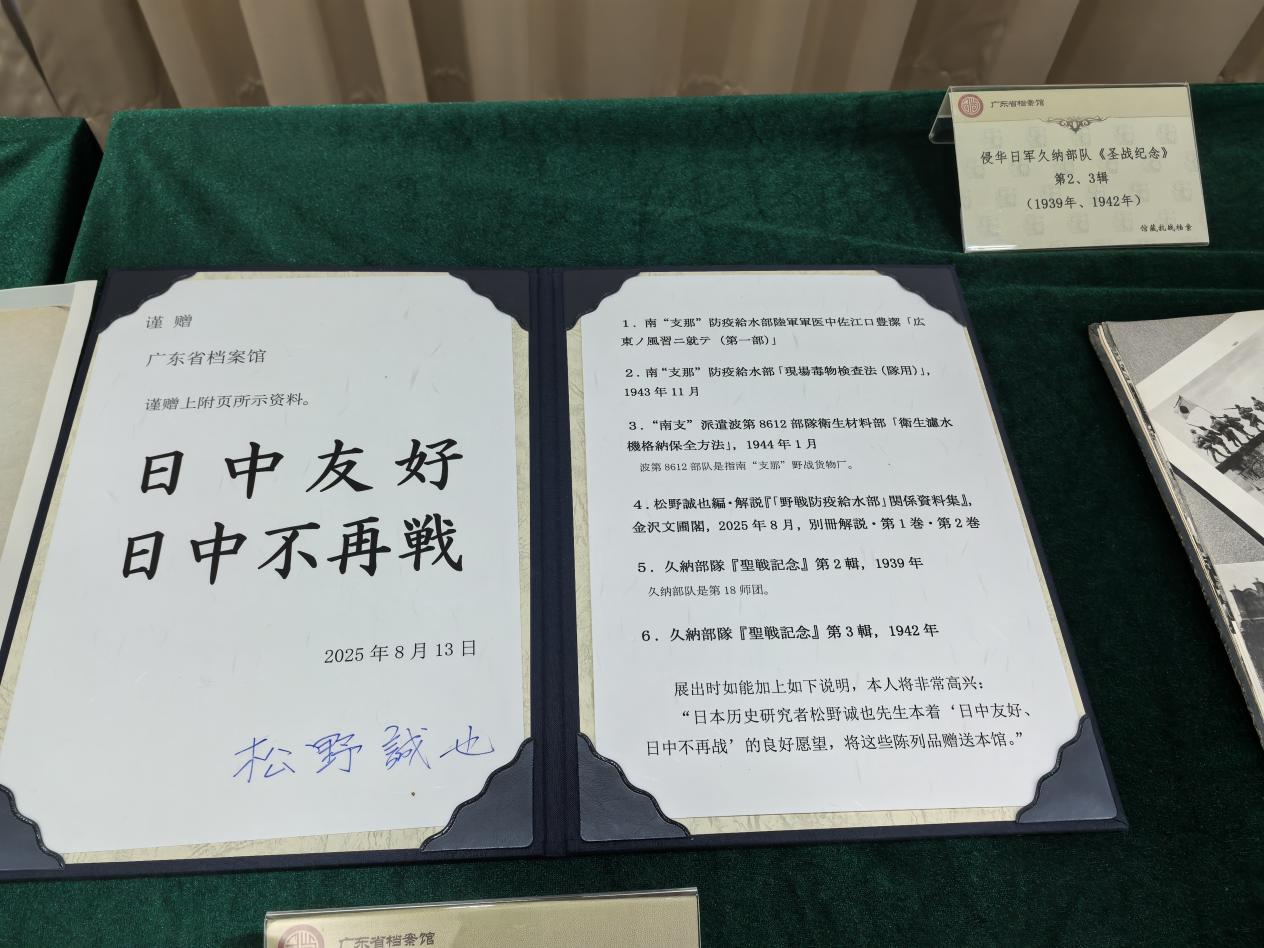 谨 赠
广东省档案馆
谨赠上附页所示资料。
日中友好
日中不再戦
2025年8月13日
松野誠也
1. 南“支那”防疫給水部陸軍軍医中佐江口豊潔「広
東ノ風習ニ就テ（第一部）」
2. 南“支那”防疫給水部「現場毒物検査法（隊用）」，
1943年11月
3. “南支”派遣波第8612部隊衛生材料部「衛生濾水
機格納保全方法」，1944年1月
波第8612部队是指南“支那”野战货物厂。
4. 松野誠也編・解説『「野戦防疫給水部」関係資料集』，
金沢文圃閣，2025年8月，別冊解説・第1巻・第2巻
5. 久納部隊『聖戦記念』第2輯，1939年
久纳部队是第18师团。
6. 久納部隊『聖戦記念』第3輯，1942年
展出时如能加上如下说明，本人将非常高兴：
“日本历史研究者松野诚也先生本着‘日中友好、
日中不再战’的良好愿望，将这些陈列品赠送本馆。”
广东省档案馆
侵华日军久纳部队《圣战纪念》
第2、3辑
（1939年、1942年）
馆藏抗战档案
广东省档案馆